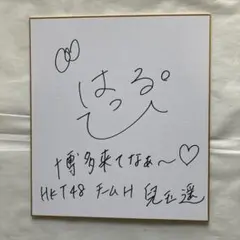 はるっぴ
博多来てなぁ〜♡
HKT48 チームH 兒玉遥